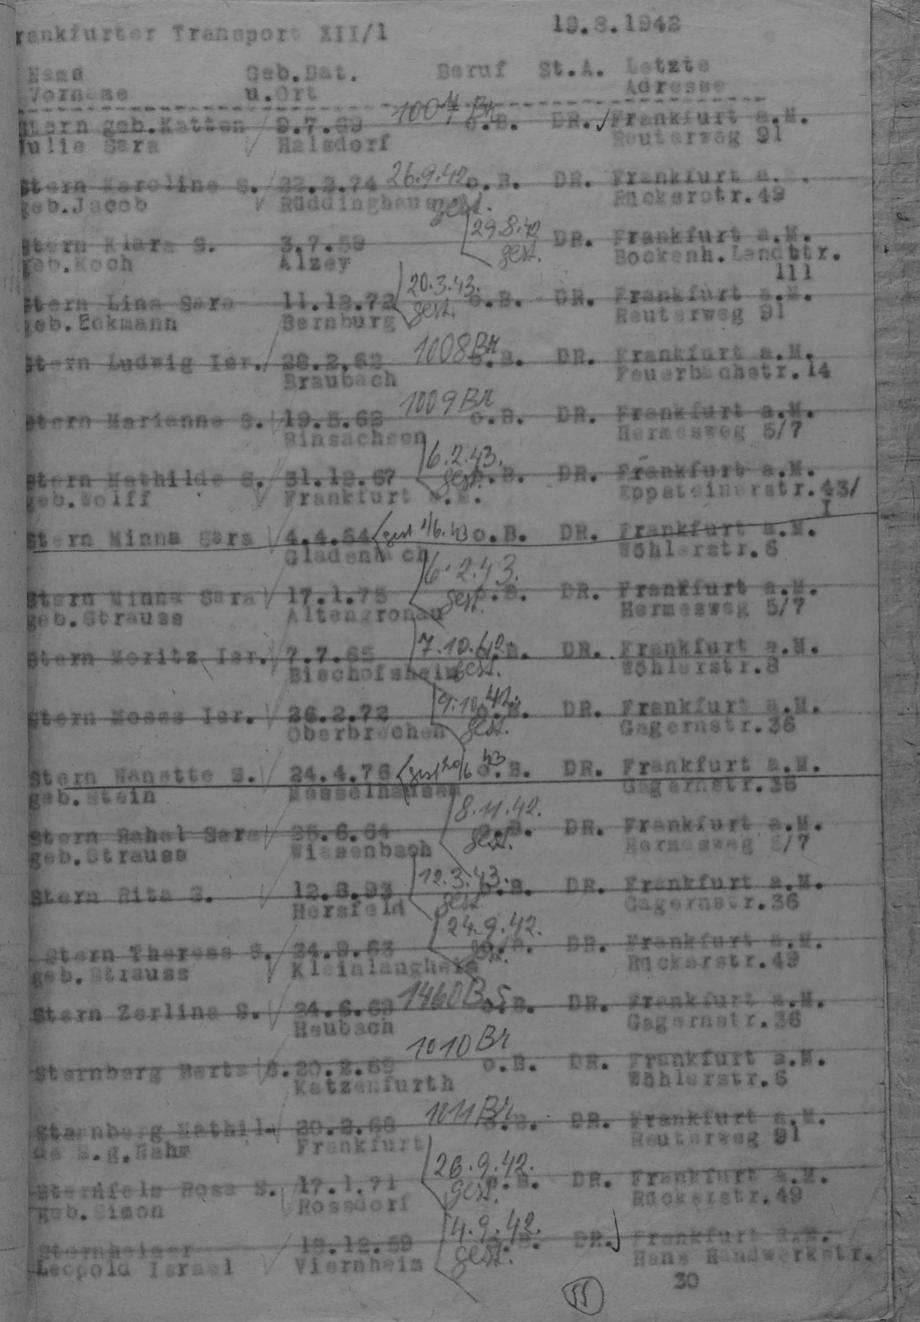 rankfurter Transport XII/1 19.8.1942
Name Geb.Dat. Beruf St.A. Letzte
Vorname u.Ort Adresse
Stern geb.Katten 9.7.69 o.B. DR. Frankfurt a.M.
Julie Sara Halsdorf Reuterweg 91
Stern Karoline S. 22.2.74 26.9.42 o.B. DR. Frankfurt a.
geb.Jacob Rüddinghausen gest. Rückerstr.49
Stern Klara S. 3.7.59 29.8.42 DR. Frankfurt a.M.
geb.Koch Alzey gest. Bockenh.Landstr.
111
Stern Lina Sara 11.12.72 20.3.43. o.B. DR. Frankfurt a.M.
geb.Eckmann Bernburg gest. Reuterweg 91
Stern Ludwig Isr. 28.2.62 1008 Br o.B. DR. Frankfurt a.M.
Braubach Feuerbachstr.14
Stern Marianne S. 19.5.62 1009 Br o.B. DR. Frankfurt a.M.
Binsachsen Hermesweg 5/7
Stern Mathilde S. 31.12.67 6.2.43. o.B. DR. Frankfurt a.M.
geb.Wolff Frankfurt a.M. gest. Eppsteinerstr.43/
I
Stern Minna Sara 4.4.64 gest o.B. DR. Frankfurt a.M.
Gladenbach Wöhlerstr.6
Stern Minna Sara 17.1.75 6.2.43. o.B. DR. Frankfurt a.M.
geb.Strauss Altengronau gest. Hermesweg 5/7
Stern Moritz Isr. 7.7.65 7.10.42. o.B. DR. Frankfurt a.M.
Bischofsheim gest. Wöhlerstr.8
Stern Moses Isr. 26.2.72 9.10.42. o.B. DR. Frankfurt a.M.
Oberbrechen gest. Gagernstr.36
Stern Nanette S. 24.4.76 gest o.B. DR. Frankfurt a.M.
geb.Stein Messelhausen Gagernstr.36
Stern Rahel Sara 25.6.64 8.11.42. o.B. DR. Frankfurt a.M.
geb.Strauss Wiesenbach gest. Hermesweg 5/7
Stern Rita S. 12.8.93 12.3.43. o.B. DR. Frankfurt a.M.
Hersfeld gest. Gagernstr.36
Stern Therese S. 24.9.63 24.9.42. o.B. DR. Frankfurt a.M.
geb.Strauss Kleinlangheim gest. Rückerstr.49
Stern Zerline S. 24.6.69 1460 o.B. DR. Frankfurt a.M.
Heubach Gagernstr.36
Sternberg Berta S. 20.2.69 1010 Br o.B. DR. Frankfurt a.M.
Katzenfurth Wöhlerstr.6
Sternberg Mathil- 20.2.68 1011 Br o.B. DR. Frankfurt a.M.
de S.g.Hahn Frankfurt Reuterweg 91
Sternfels Rosa S. 17.1.71 26.9.42. o.B. DR. Frankfurt a.M.
geb.Simon Rossdorf gest. Rückerstr.49
Sternheimer 12.59 4.9.42. o.B. DR. Frankfurt a.M.
Leopold Israel Viernheim gest. Hans Handwerkstr.
30
55